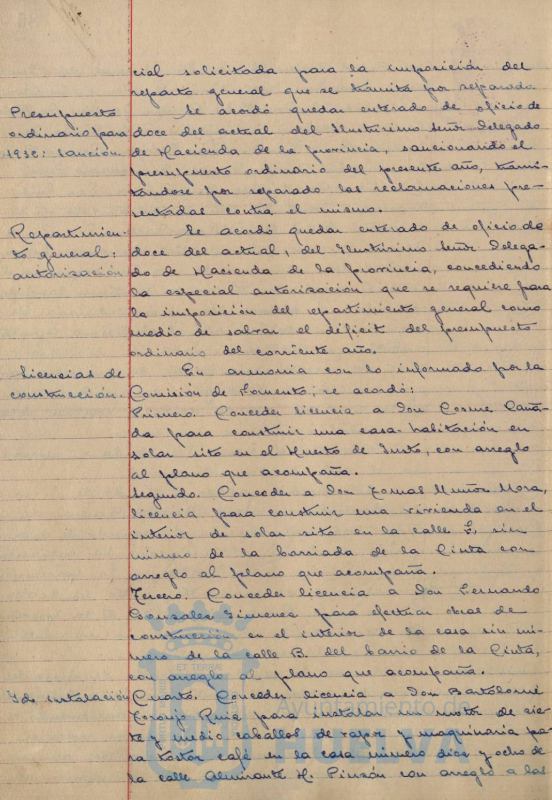 cial solicitada para la imposición del
reparto general que se tramita por separado.
Presupuesto
ordinario para
1932: sanción.
Se acordó quedar enterado de oficio de
doce del actual del Ilustrísimo Señor Delegado
de Hacienda de la provincia, sancionando el
presupuesto ordinario del presente año, trami-
tándose por separado las reclamaciones pre-
sentadas contra el mismo.
Repartimien-
to general:
autorización
Se acordó quedar enterado de oficio de
doce del actual, del Ilustrísimo Señor Delega-
do de Hacienda de la provincia, concediendo
la especial autorización que se requiere para
la imposición del repartimiento general como
medio de salvar el déficit del presupuesto
ordinario del corriente año.
Licencias de
construcción.
En armonía con lo informado por la
Comisión de Fomento, se acordó:
Primero. Conceder licencia a Don Cosme Caña-
da para construir una casa-habitación en
solar sito en el Huerto de Justo, con arreglo
al plano que acompaña.
Segundo. Conceder a Don Tomas Muñoz Mora,
licencia para construir una vivienda en el
interior de solar sito en la calle E, sin
número de la barriada de la Cinta con
arreglo al plano que acompaña.
Tercero. Conceder licencia a Don Fernando
Gonzalez Gimenez para efectuar obras de
construcción en el interior de la casa sin nú-
mero de la calle B. del barrio de la Cinta,
con arreglo al plano que acompaña.
Id. instalación
Cuarto. Conceder licencia a Don Bartolomé
Toronjo Ruiz para instalar un motor de sie-
te y medio caballos de vapor y maquinaria pa-
ra tostar café en la casa número diez y ocho de
la calle Almirante H. Pinzón con arreglo a las
ET TERRAE
Ayuntamiento de
HUELVA